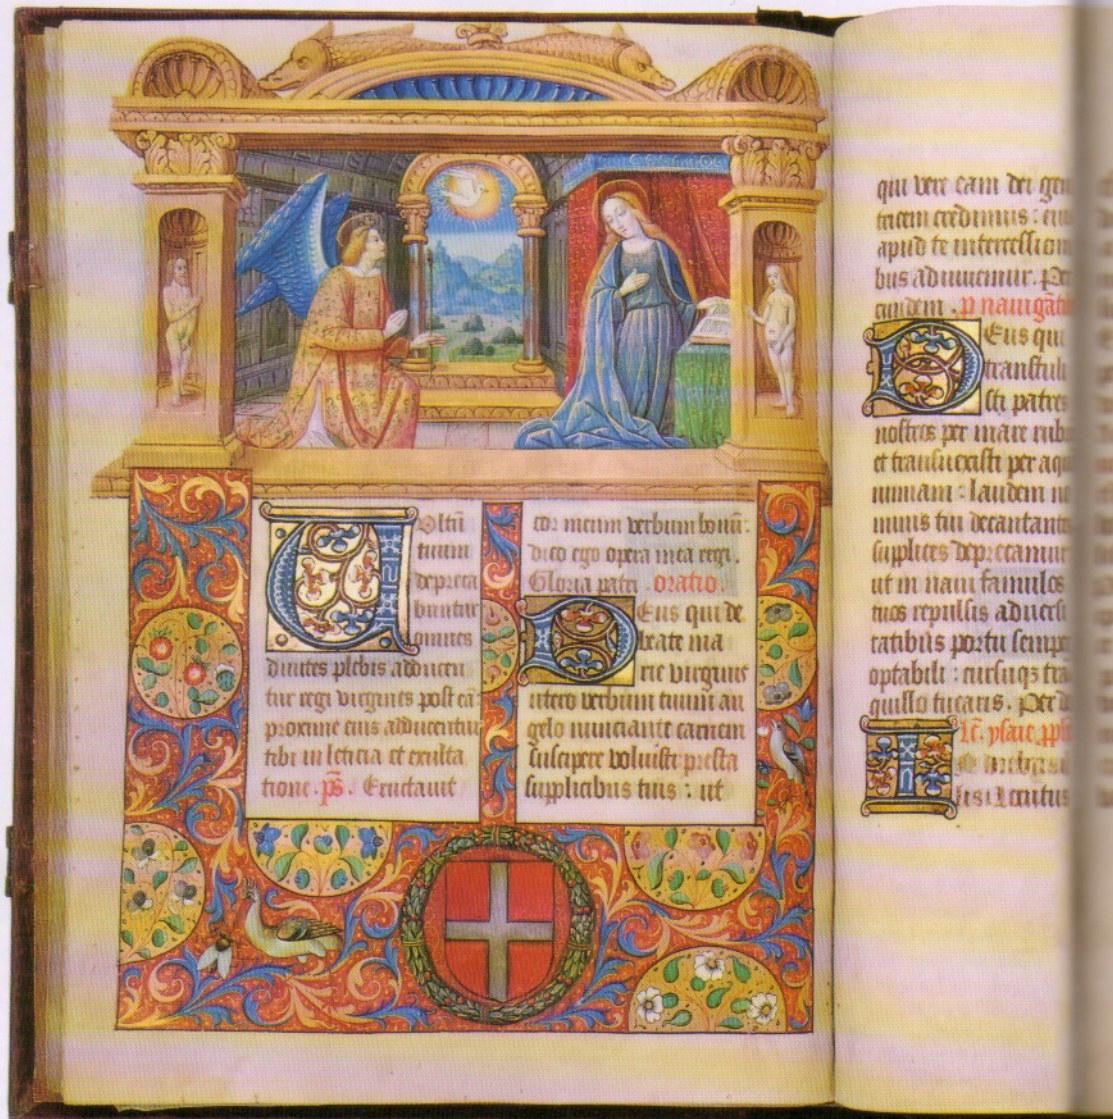 Vltū
tuum
depreca
buntur
omnes
diuites plebis adducen
tur regi virgines post eā:
proxime eius adducentur
tibi in leticia et exulta
tione. p̄s. Eructauit
cor meum verbum bonū:
dico ego opera mea regi.
Gloria patri. oratio.
Deus qui de
beate ma
rie virginis
utero verbum tuum an
gelo nunciante carnem
suscipere voluisti: presta
supplicibus tuis: ut
qui vere eam dei gen
tricem credimus: eiu
apud te intercession
bus adiuuemur. Per
eundem. p nauigāti
Deus qui
transtuli
sti patres
nostros per mare rub
et transuexisti per aqu
nimiam: laudem no
minis tui decantante
supplices deprecamur
ut in naui famulos
tuos repulsis aduersi
tatibus portu semper
optabili: cursuqz tra
quillo tuearis. Per d
Lc̄. ysaie pph
In diebus il
lis: Locutus